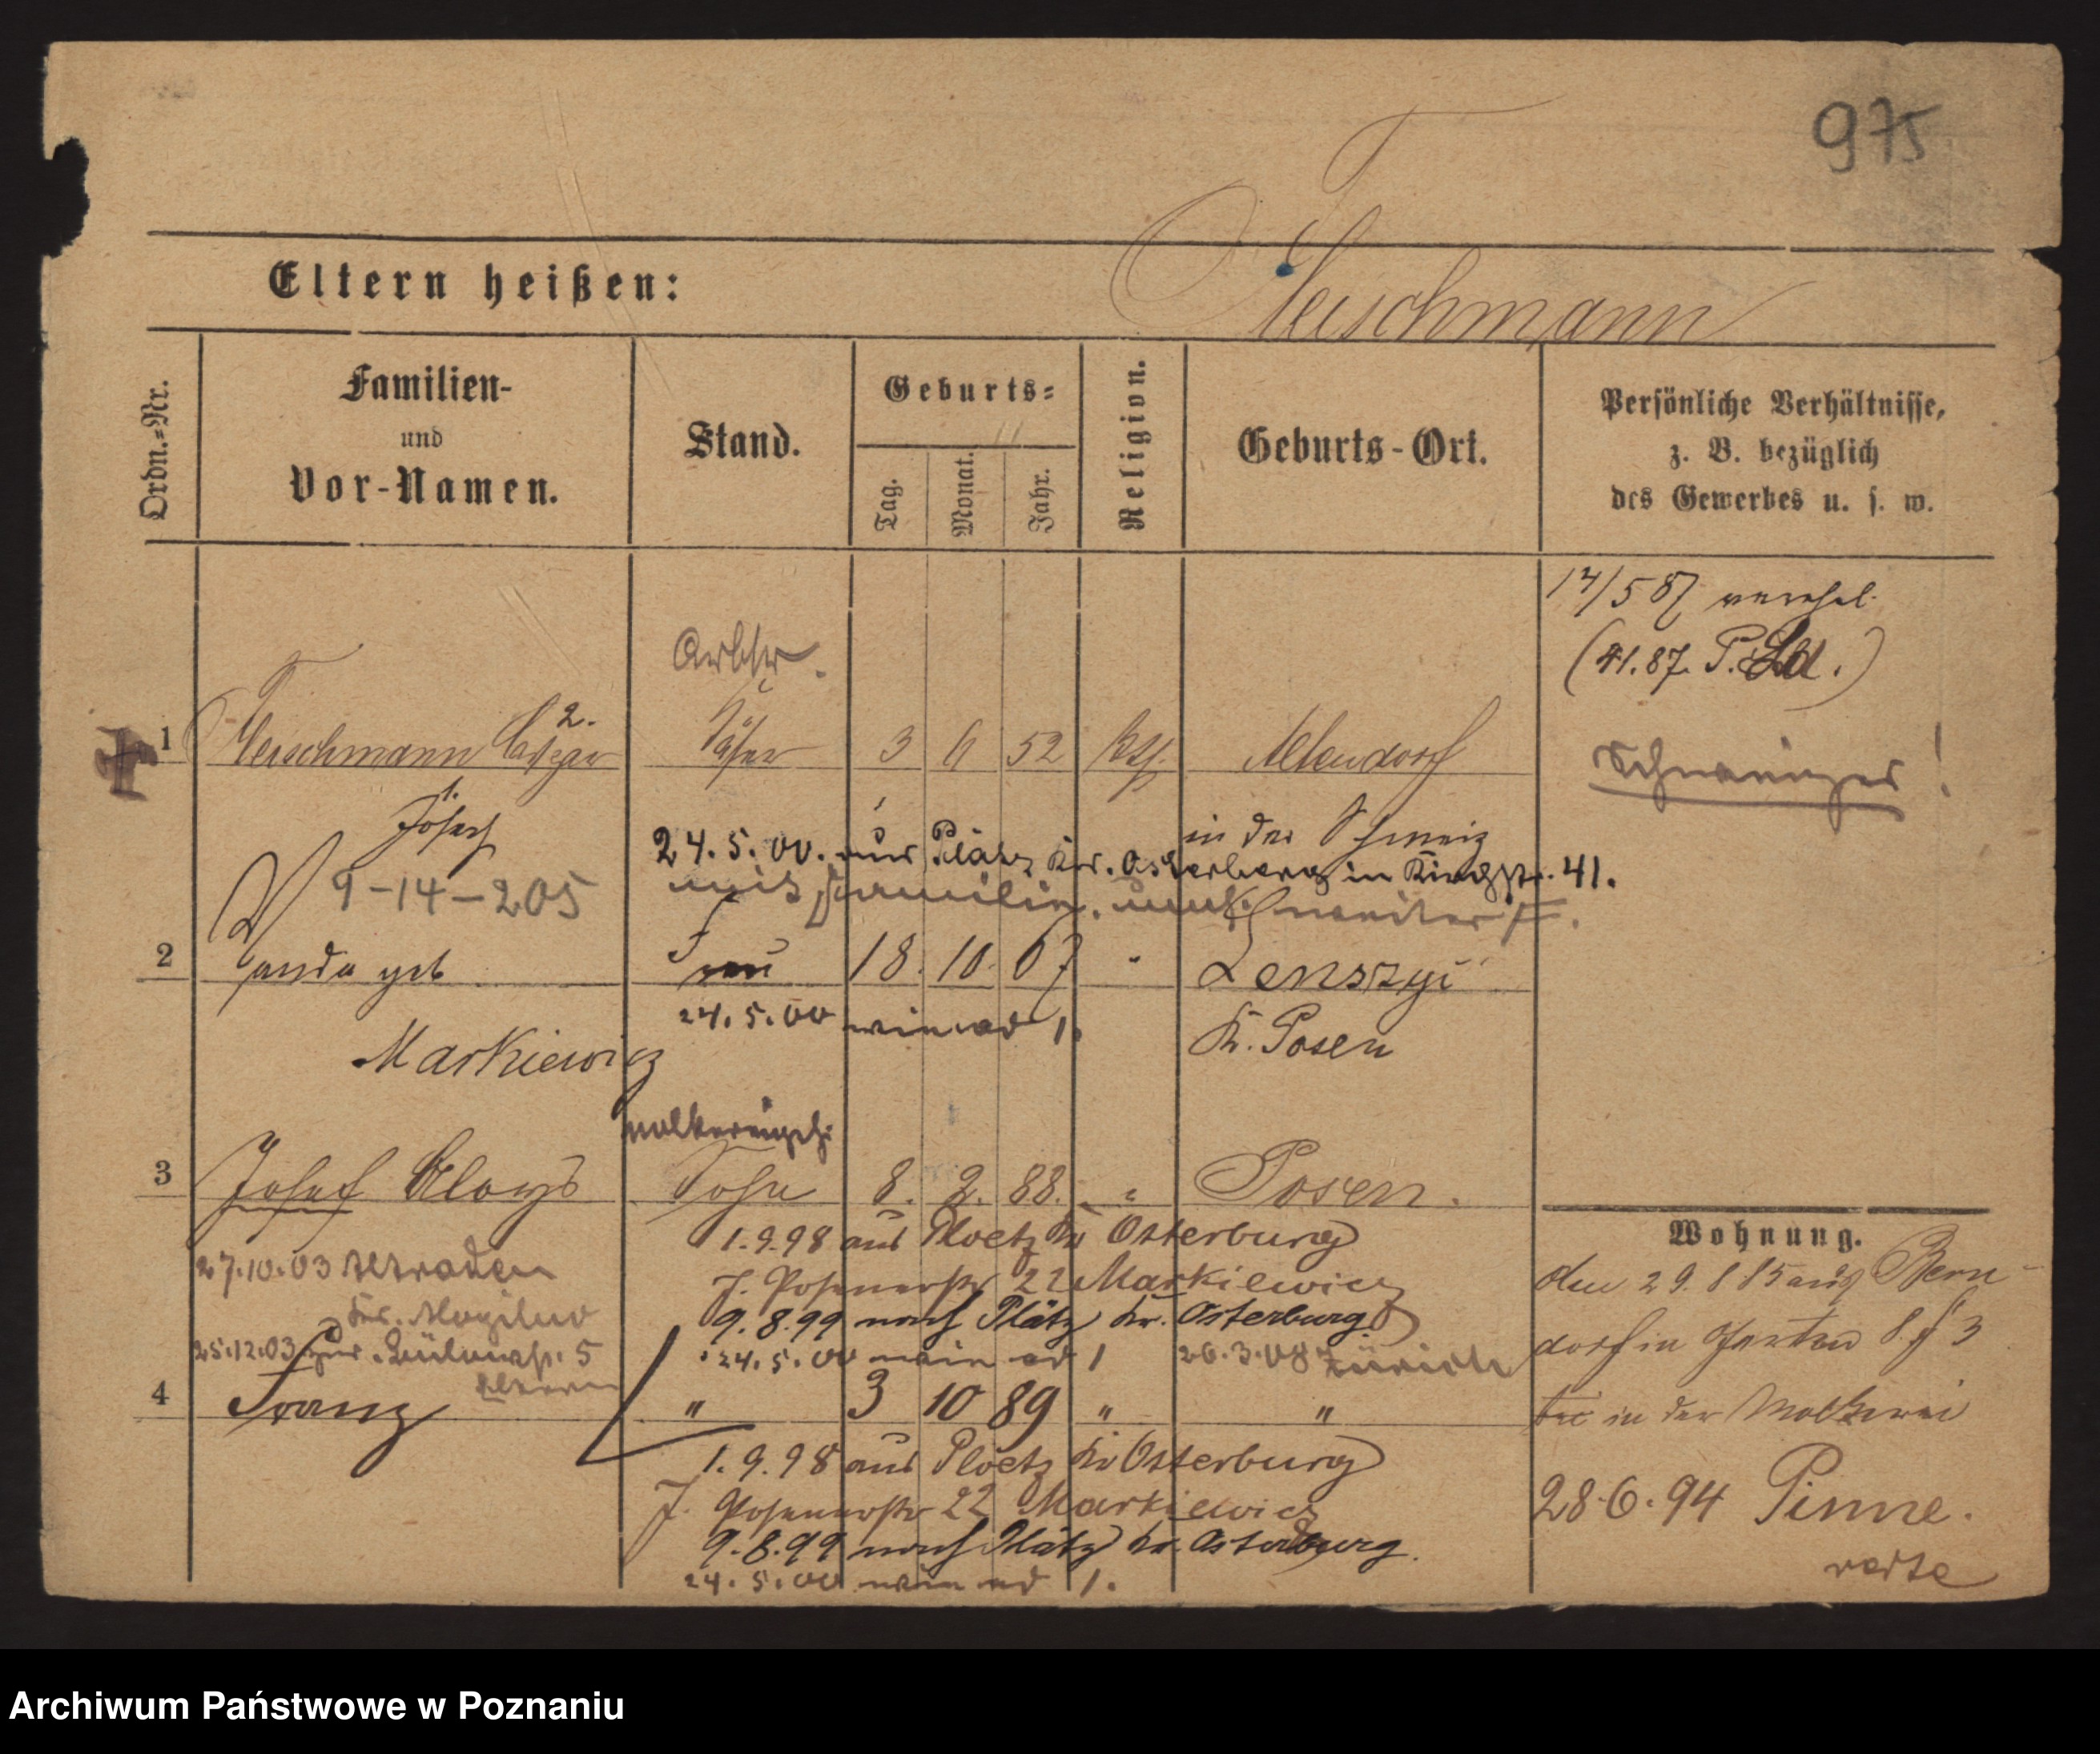 975
Eltern heißen:
Fleischmann
Ordn.-Nr.
Familien-
und
Vor-Namen.
Stand.
Geburts-
Tag.
Monat.
Jahr.
Religion.
Geburts-Ort.
Persönliche Verhältnisse,
z. B. bezüglich
des Gewerbes u. s. w.
14/5 87 verehel.
(41.87. P.
Arbtr.
1 Fleischmann 2. 3 6 52 kth. Altendorf
Schweizer!
1. Josef in der Schweiz
24.5.00. aus Plätz Kr. Osterburg in 41.
9-14-205 mit Familie.
2 Wanda geb Frau 18. 10. 67 " Lenszyi
24.5.00 wie ad 1. K. Posen
Markiewicz
3 Josef Aloys Sohn 8. 2. 88. " Posen.
1.9.98 aus Ploetz Kr Osterburg
27.10.03 Altraden
J. Posenerstr 22 Markiewicz
Kr. Mogilno
9.8.99 nach Plätz Kr. Osterburg
25.12.03 5
Eltern
24.5.00 wie ad 1 26.3.08 Zürich
4 Franz " 3 10 89 " "
1.9.98 aus Ploetz Kr Osterburg
J. Posenerstr 22 Markiewicz
9.8.99 nach Plätz Kr. Osterburg.
24.5.00 wie ad 1.
Wohnung.
den 29. 8 85 aus Bern-
dorf in 3
in der Molkerei
28.6.94 Pinne.
verte
Archiwum Państwowe w Poznaniu